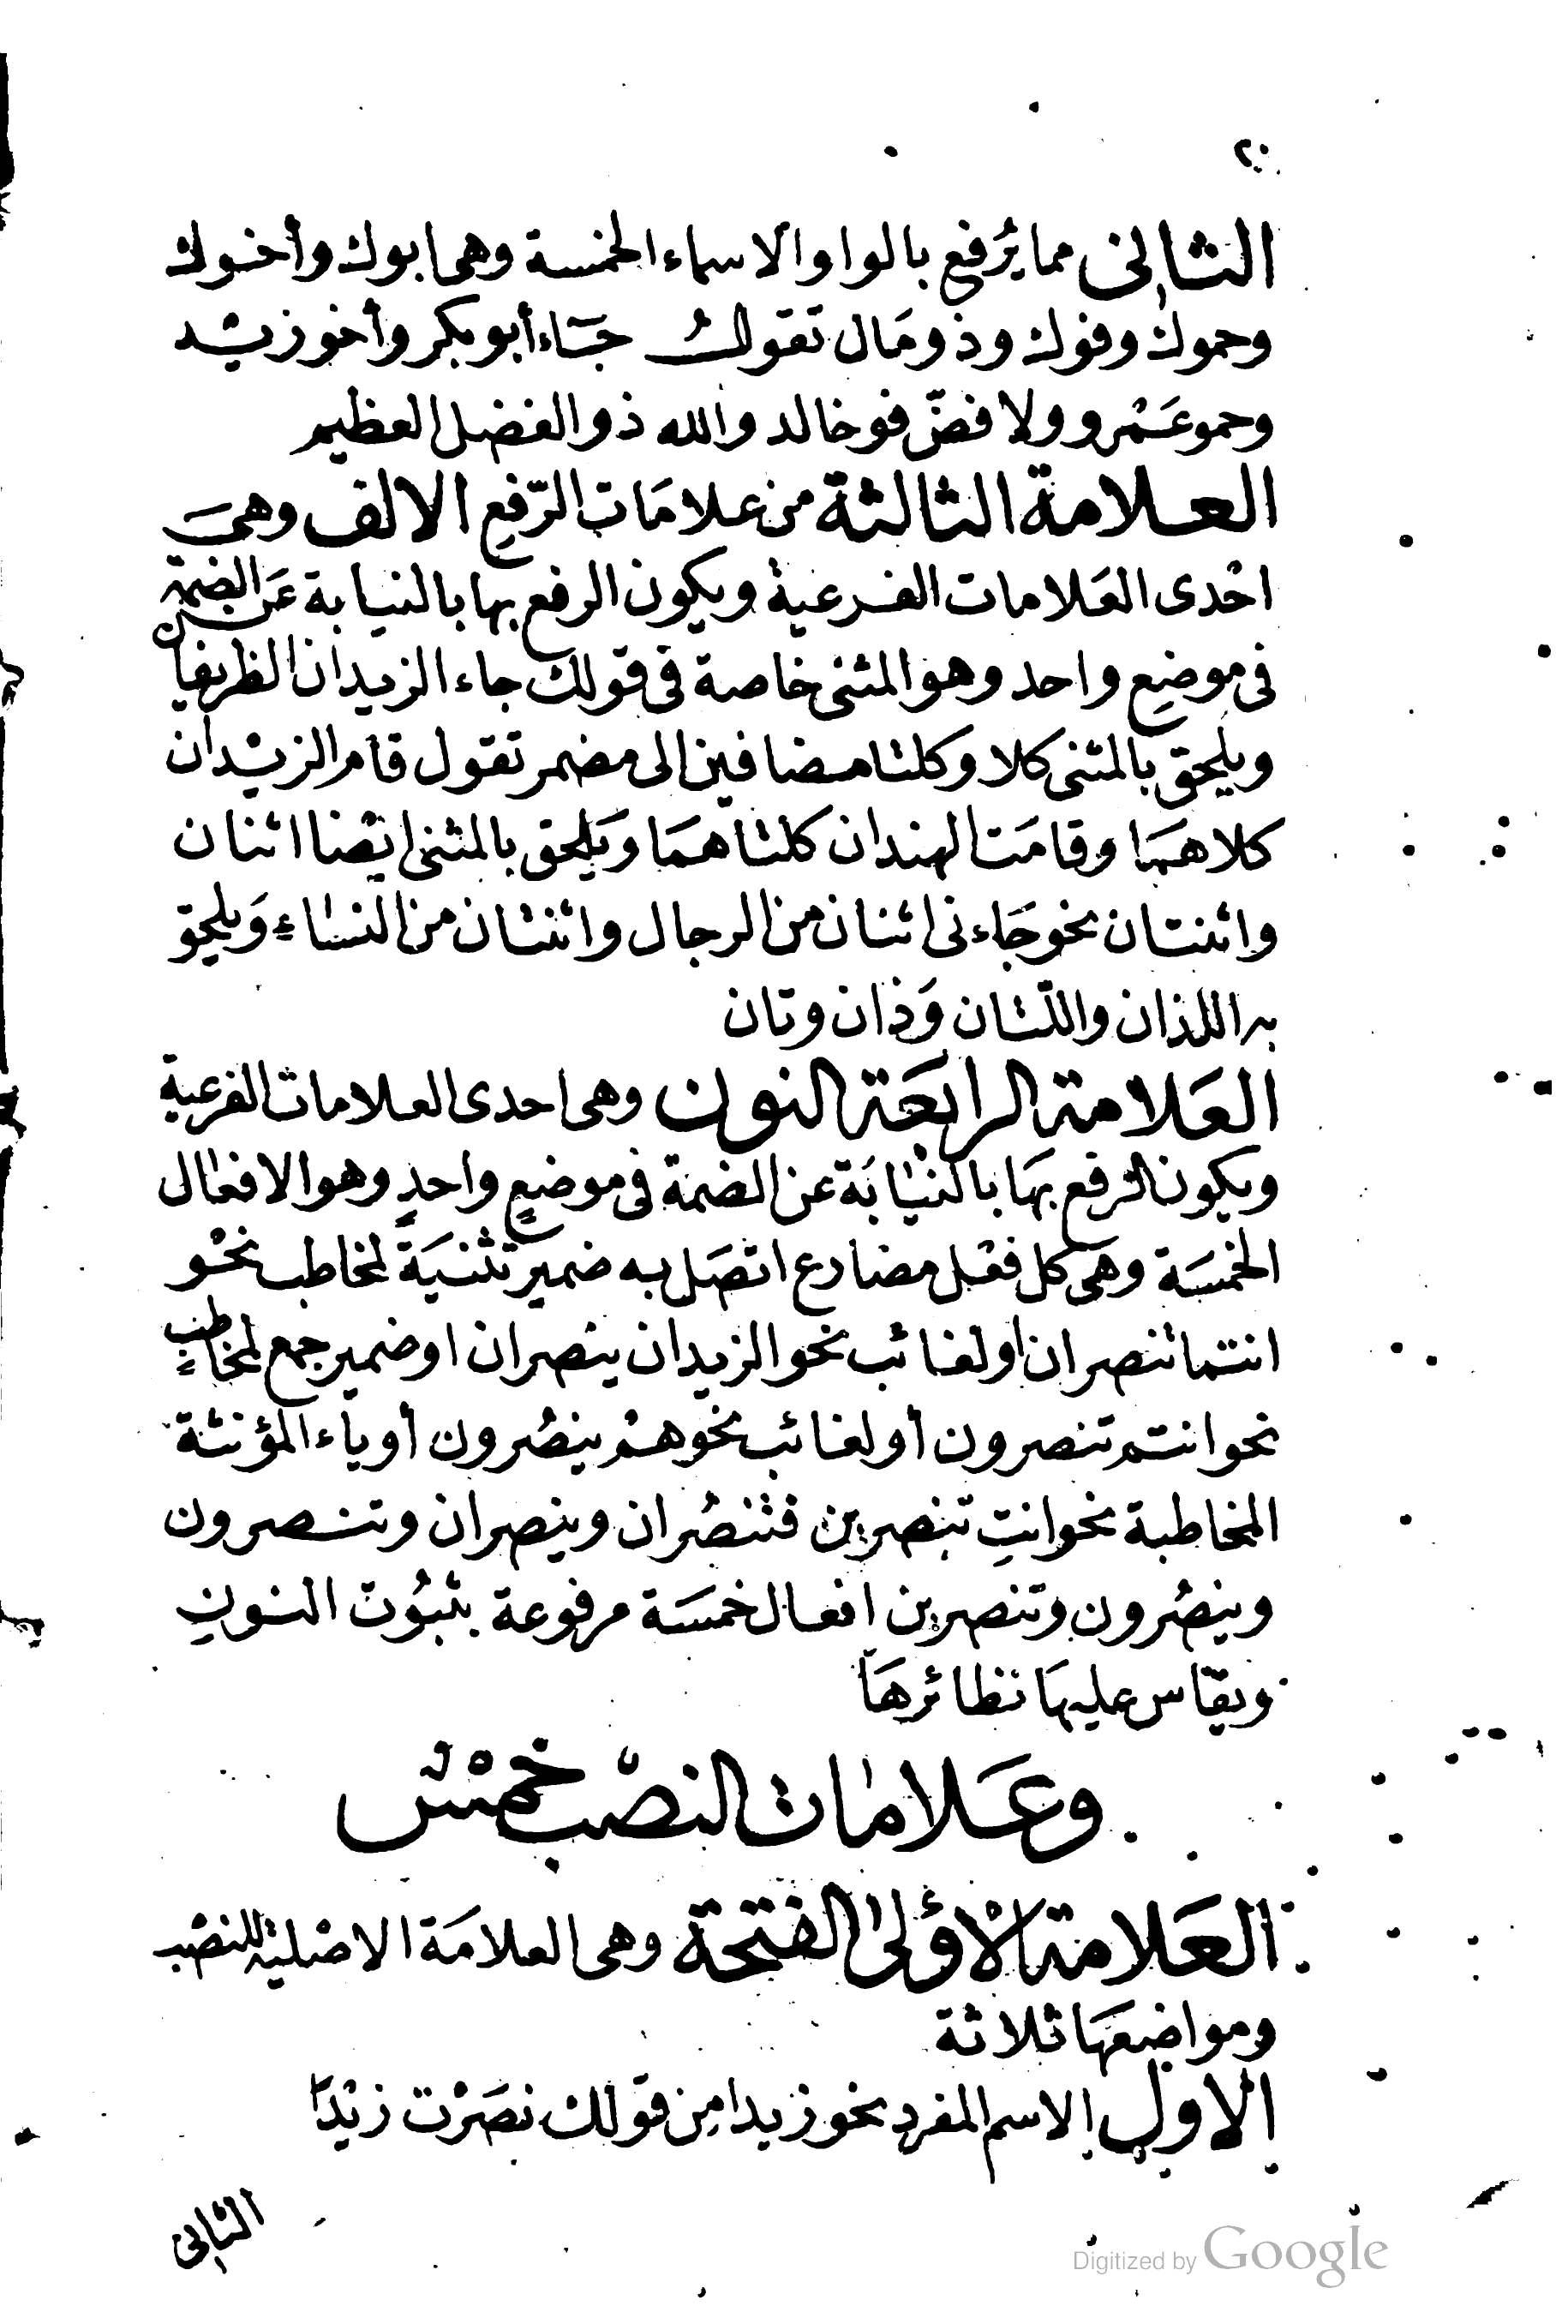 ٢٠
الثانى مما يُرفع بالواو الاسماء الخمسة وهى ابوك وأخوك
وحموك وفوك وذو مَال تقولُ جَاء أبو بكر وأخو زيْد
وحمو عَمْرو ولا فضّ فو خالد والله ذو الفضل العظيم
العلامة الثالثة من علامَات الرّفعِ الالف وهىَ
احْدى العَلامات الفرعية ويكون الرفع بها بالنيابة عَن الضمة
فى موضعٍ واحد وهو المثنى خاصة فى قولك جاء الزيدان الظريفان
ويلحق بالمثنى كلا وكلتا مضافين الى مضمر تقول قام الزيْدان
كلاهمَا وقامَت الهندان كلتاهمَا ويَلحق بالمثنى ايْضا اثنان
واثنتان نحو جَاءنى اثنان من الرجال واثنتان من النساءِ وَيلحق
به اللذان واللّتان وَذان وتان
العَلامة الرابعَة النون وهى احدى العلامات الفرعية
ويكون الرفع بهَا بالنيابَة عن الضمة فى موضعٍ واحدٍ وهو الافعال
الخمسَة وهى كل فعْل مضارع اتصَل به ضمير تثنيَة لمخاطب نحْو
انتما تنصران او لغائب نحو الزيدان ينصران او ضمير جمع لمخاطبٍ
نحو انتم تنصرون أو لغائب نحو همْ ينصُرون أو ياء المؤنثة
المخاطبة نحو انتِ تنصرين فتنصُران وينصران وتنصرون
وينصُرون وتنصرين افعال خمسَة مرفوعة بثبُوت النونِ
ويقاس عليهَا نظائرهَا
وعَلامات النصْب خمْسٌ
العَلامة الاوْلى الفتحة وهى العلامَة الاصْلية للنصْب
ومواضعهَا ثلاثة
الاول الاسم المفرد نحو زيدا مِن قولك نصَرْت زيْدًا
الثانى
Digitized by Google